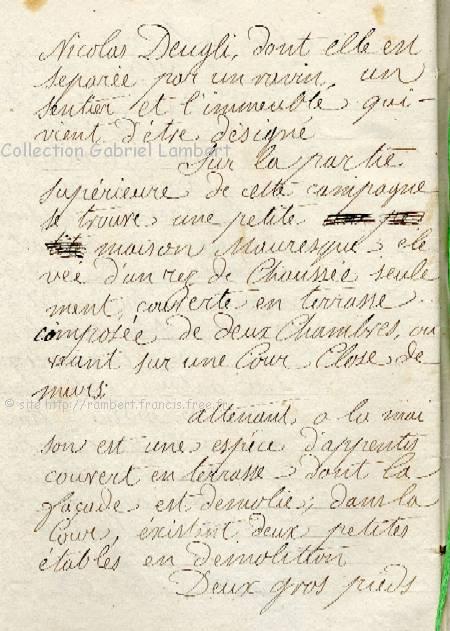 Nicolas Deugli, dont elle en
separée par un ravin, un
sentier et l'immeuble qui-
vient d'être désigné
Collection Gabriel Lambert
Sur la partie
supérieure de cette campagne
se trouve une petite
maison Mauresque, ele
vée d'un rez de Chaussée seule
ment, couverte en terrasse
composée de deux Chambres, ou
vrant sur une Cour Close de
murs.
© site http://rambert.francis.free.fr
attenant a la mai
son est une espèce d'appentis
couvert en terrasse dont la
façade est démolie; dans la
Cour, existent deux petites
étables en démolition
Deux gros pieds